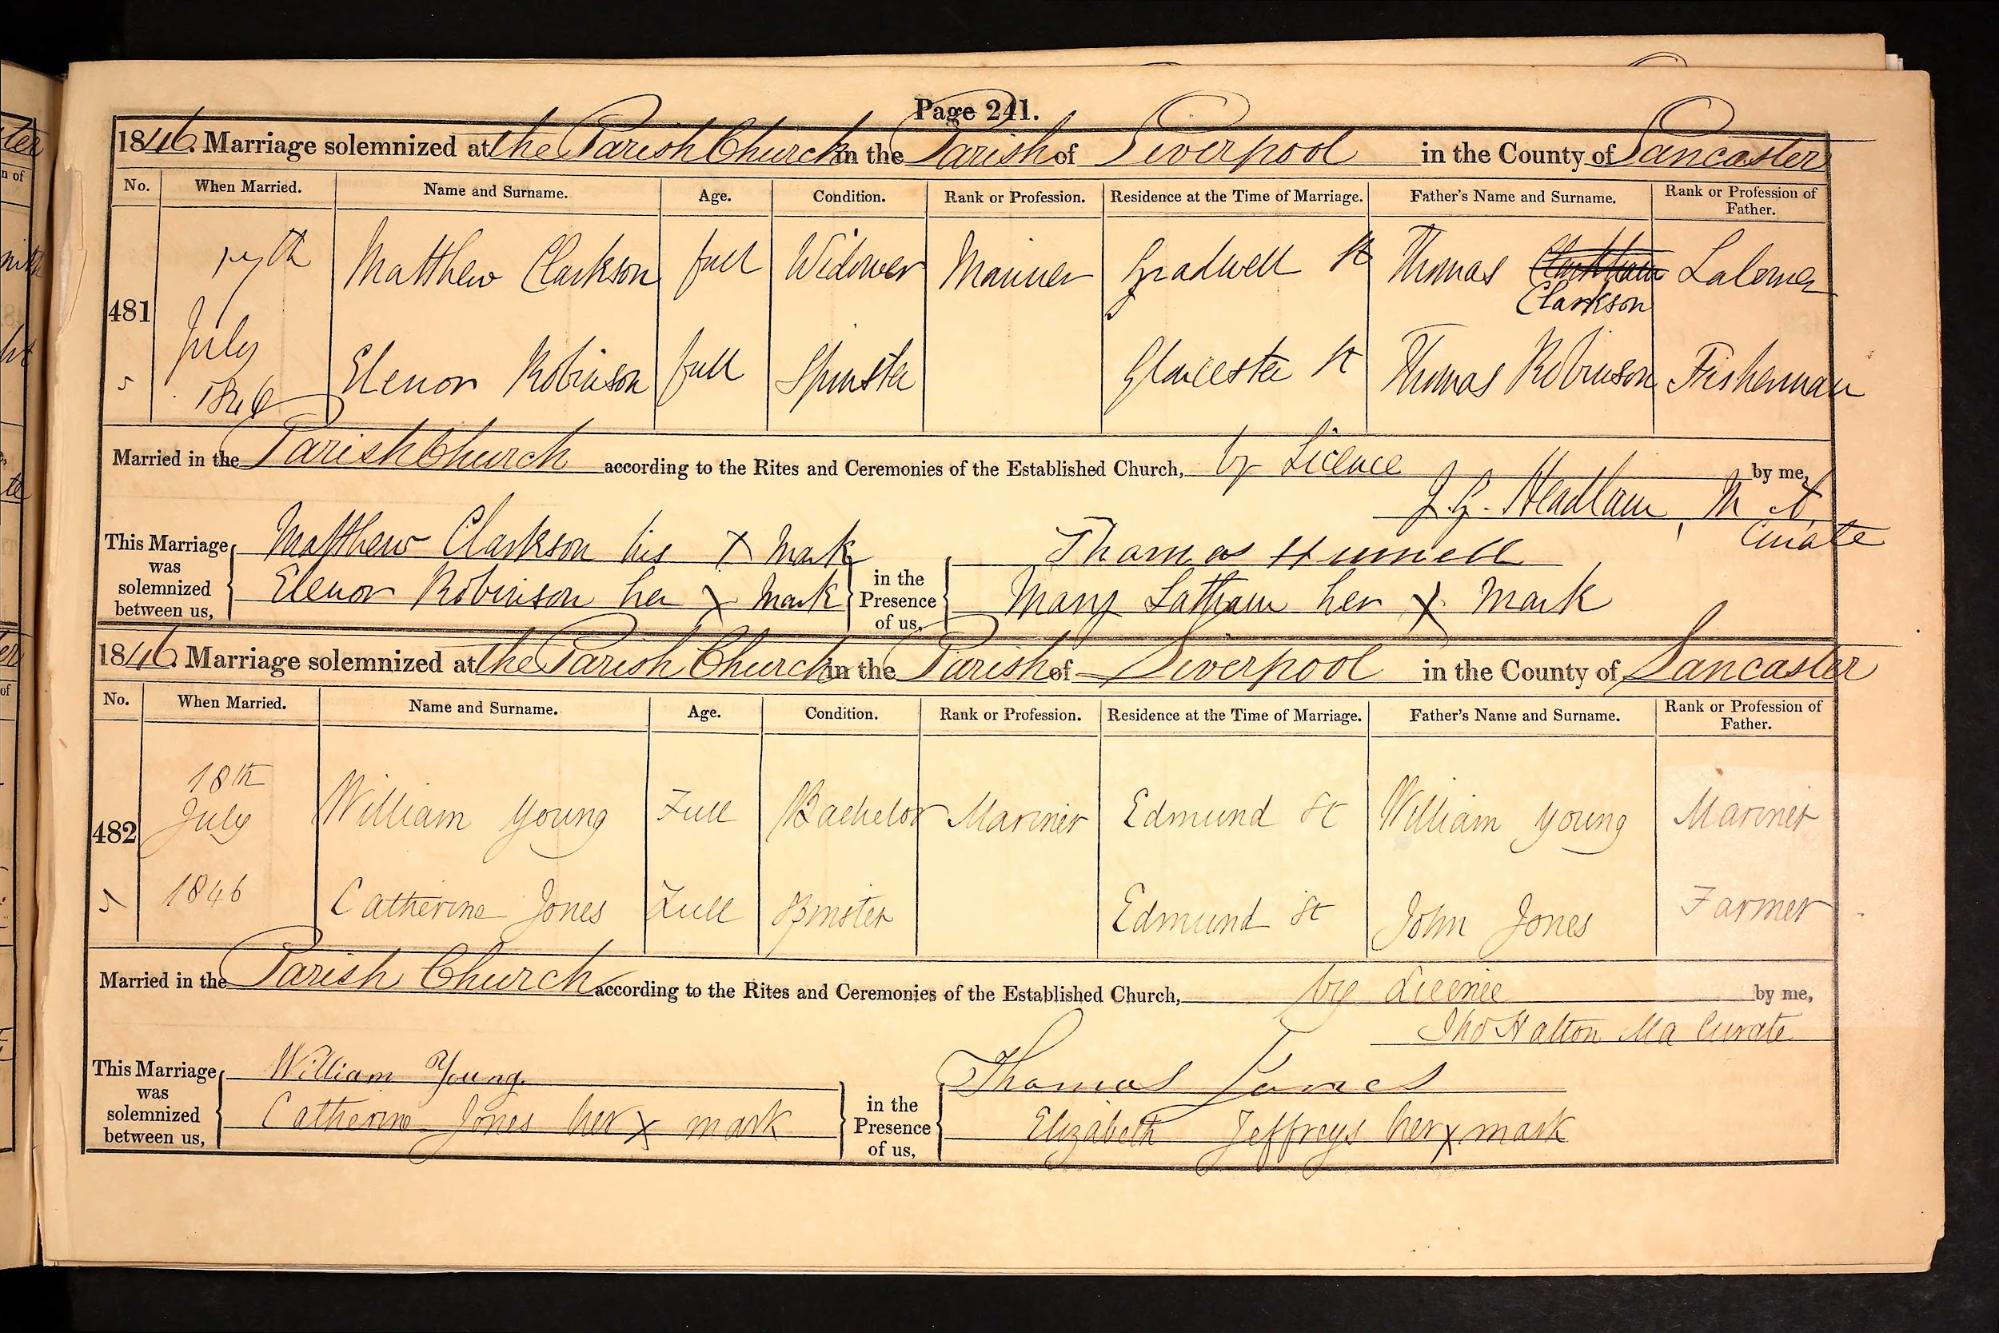 Page 241.
1846. Marriage solemnized at the Parish Church in the Parish of Liverpool in the County of Lancaster
No. When Married. Name and Surname. Age. Condition. Rank or Profession. Residence at the Time of Marriage. Father's Name and Surname. Rank or Profession of Father.
17th Matthew Clarkson full Widower Mariner Gradwell St Thomas Clarkham Labourer
481 Clarkson
July
5 1846 Elenor Robinson full Spinster Gloucester St Thomas Robinson Fisherman
Married in the Parish Church according to the Rites and Ceremonies of the Established Church, by Licence by me,
J. G. Headlam, M A
Curate
This Marriage was solemnized between us, Matthew Clarkson his X Mark
Elenor Robinson her X Mark
in the Presence of us, Thomas
Mary Latham her X Mark
1846. Marriage solemnized at the Parish Church in the Parish of Liverpool in the County of Lancaster
No. When Married. Name and Surname. Age. Condition. Rank or Profession. Residence at the Time of Marriage. Father's Name and Surname. Rank or Profession of Father.
18th
482 July William Young Full Bachelor Mariner Edmund St William Young Mariner
5 1846 Catherine Jones Full Spinster Edmund St John Jones Farmer
Married in the Parish Church according to the Rites and Ceremonies of the Established Church, by Licence by me,
Thos Halton Ma Curate
This Marriage was solemnized between us, William Young.
Catherine Jones her X mark
in the Presence of us, Thomas Jones
Elizabeth Jeffreys her X mark